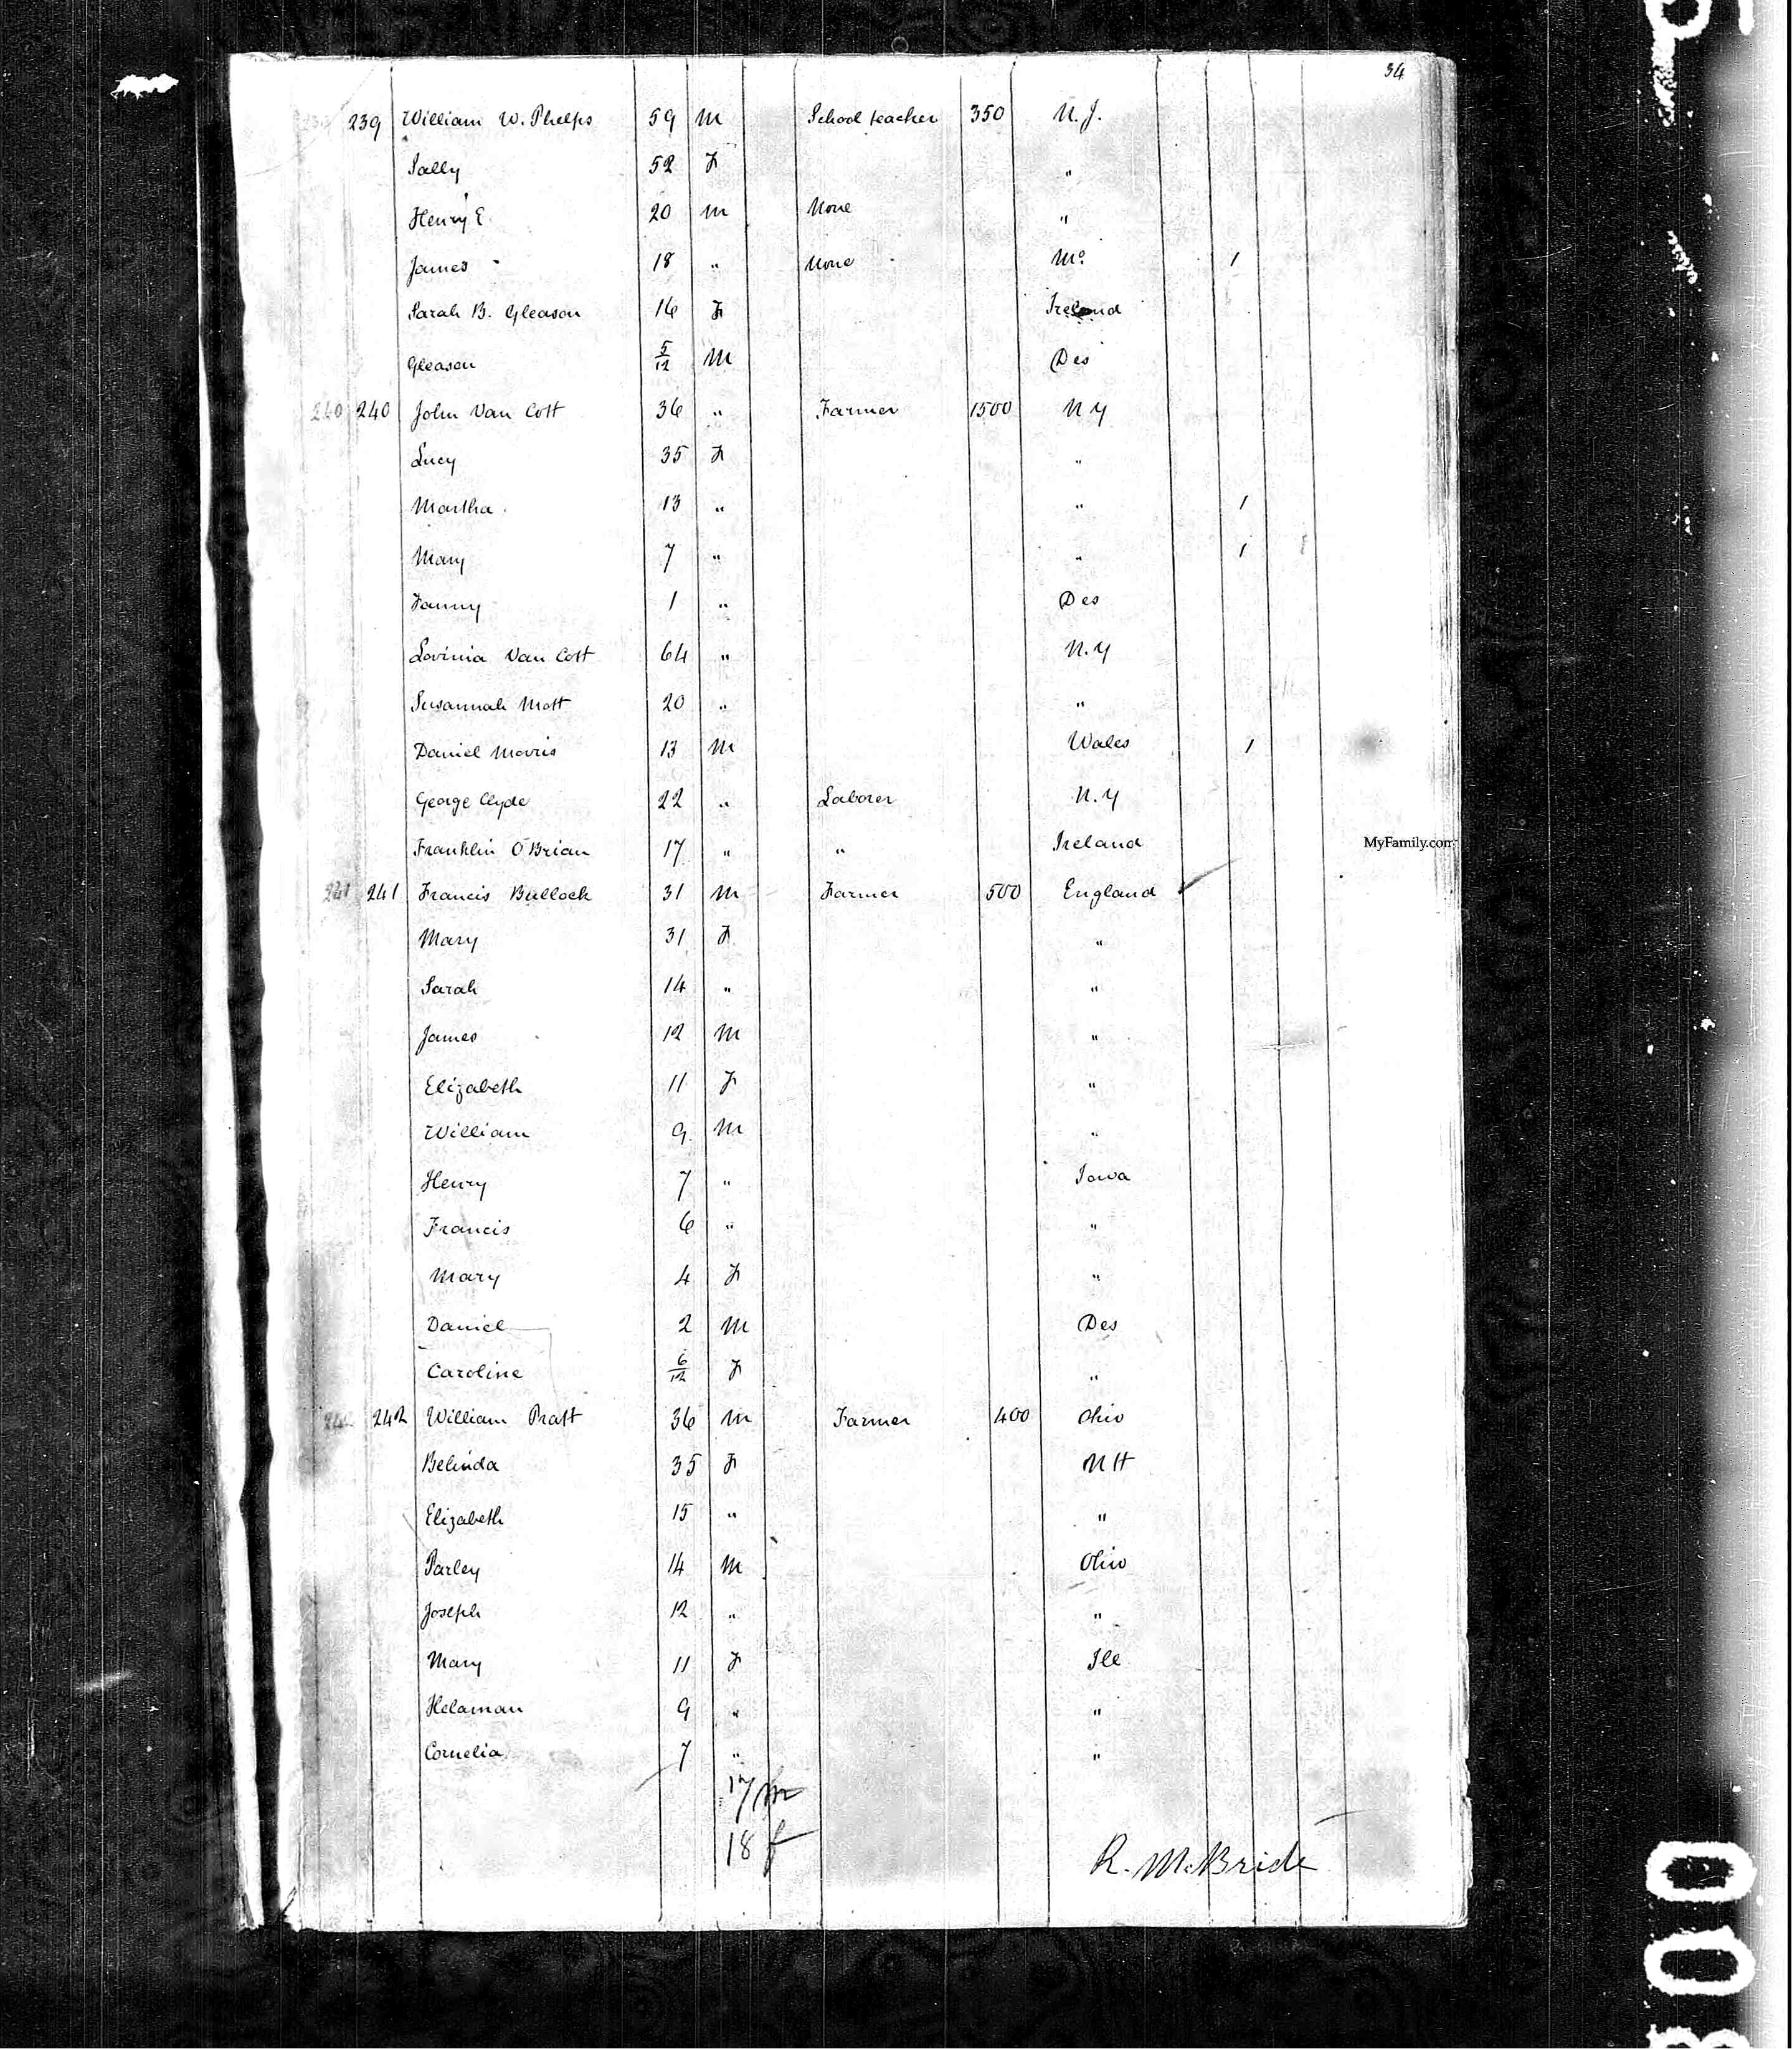 34
239 239 William W. Phelps 59 M School teacher 350 N. J.
Sally 52 F "
Henry E 20 M None "
James 18 " None Mo 1
Sarah B. Gleason 16 F Ireland
Gleason 5/12 M Des
240 240 John Van Cott 36 " Farmer 1500 N Y
Lucy 35 F "
Martha 13 " " 1
Mary 7 " " 1
Fanny 1 " Des
Lovinia Van Cott 64 " N.Y
Susannah Mott 20 " "
Daniel Morris 13 M Wales 1
George Clyde 22 " Laborer N.Y
Franklin O'Brian 17 " " Ireland
MyFamily.com
241 241 Francis Bullock 31 M Farmer 500 England
Mary 31 F "
Sarah 14 " "
James 12 M "
Elizabeth 11 F "
William 9 M "
Henry 7 " Iowa
Francis 6 " "
Mary 4 F "
Daniel 2 M Des
Caroline 6/12 F "
242 242 William Pratt 36 M Farmer 400 Ohio
Belinda 35 F N H
Elizabeth 15 " "
Parley 14 M Ohio
Joseph 12 " "
Mary 11 F Ill
Helaman 9 " "
Cornelia 7 " "
17 m
18 f
R. McBride